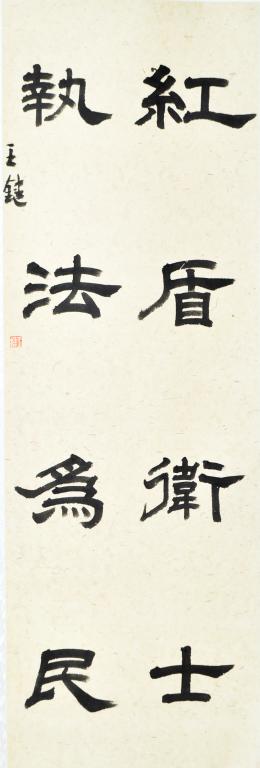 紅盾衛士
執法為民
王鍵